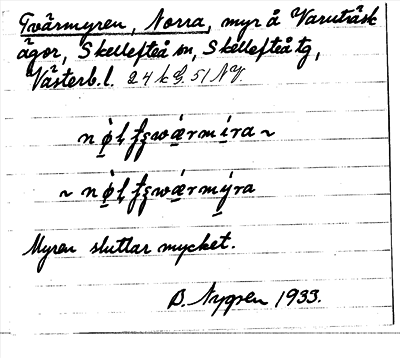 Tvärmyren, Norra, myr å Varuträsk
ägor, Skellefteå sn, Skellefteå tg,
Västerb.l. 24 k G. 51 NV.
nø̀ḷ fʂwǽrmíra ~
~ nø̀ḷ fʂwǽrmýra
Myren sluttar mycket.
B. Nygren 1933.